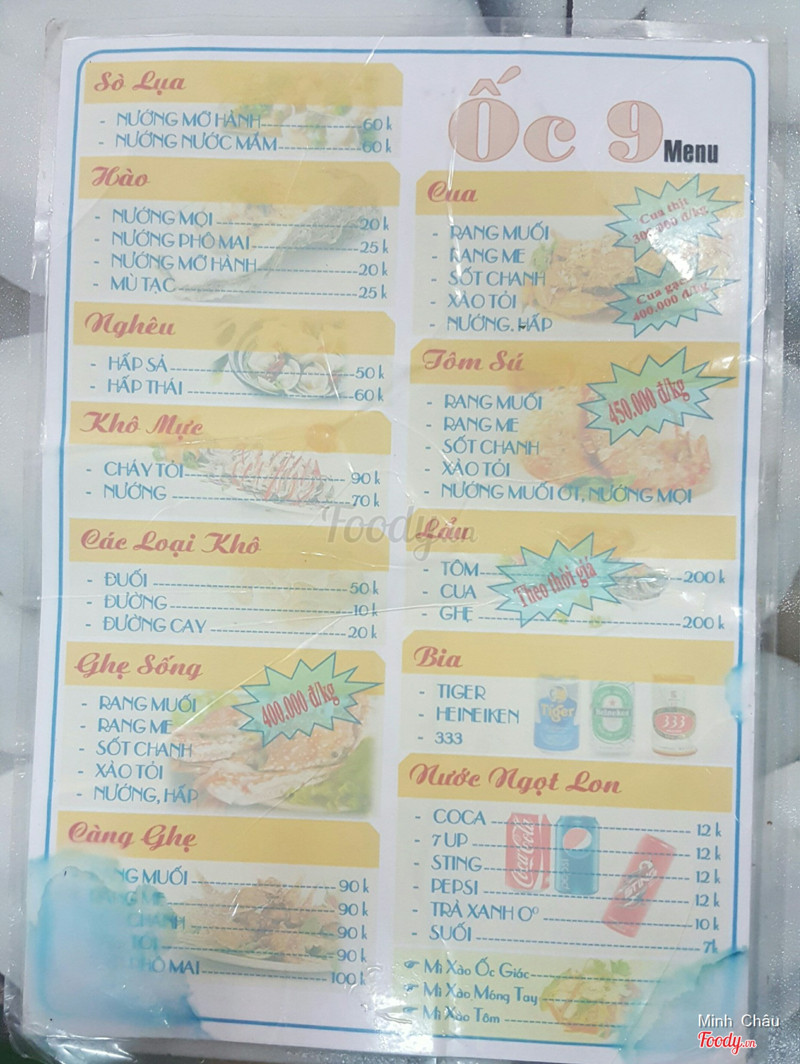 Ốc 9 Menu
Sò Lụa
- NƯỚNG MỠ HÀNH 60 k
- NƯỚNG NƯỚC MẮM 60 k
Hào
- NƯỚNG MỌI 20 k
- NƯỚNG PHÔ MAI 25 k
- NƯỚNG MỠ HÀNH 20 k
- MÙ TẠC 25 k
Nghêu
- HẤP SẢ 50 k
- HẤP THÁI 60 k
Khô Mực
- CHÁY TỎI 90 k
- NƯỚNG 70 k
Các Loại Khô
- ĐUỐI 50 k
- ĐƯỜNG 10 k
- ĐƯỜNG CAY 20 k
Ghẹ Sống
400.000 đ/kg
- RANG MUỐI
- RANG ME
- SỐT CHANH
- XÀO TỎI
- NƯỚNG, HẤP
Càng Ghẹ
RANG MUỐI 90 k
RANG ME 90 k
CHANH 90 k
TỎI 90 k
PHÔ MAI 100 k
Cua
Cua thịt
300.000 đ/kg
- RANG MUỐI
- RANG ME
- SỐT CHANH
- XÀO TỎI
- NƯỚNG, HẤP
Cua gạch
400.000 đ/kg
Tôm Sú
450.000 đ/kg
- RANG MUỐI
- RANG ME
- SỐT CHANH
- XÀO TỎI
- NƯỚNG MUỐI ỚT, NƯỚNG MỌI
Lẩu
- TÔM 200 k
- CUA Theo thời giá
- GHẸ 200 k
Bia
- TIGER
- HEINEIKEN
- 333
Tiger
Heineken
333
Nước Ngọt Lon
- COCA 12 k
- 7 UP 12 k
- STING 12 k
- PEPSI 12 k
- TRÀ XANH O° 10 k
- SUỐI 7k
Coca-Cola
pepsi
STING
Mì Xào Ốc Giác
Mì Xào Móng Tay
Mì Xào Tôm
Foody.vn
Minh Châu
Foody.vn